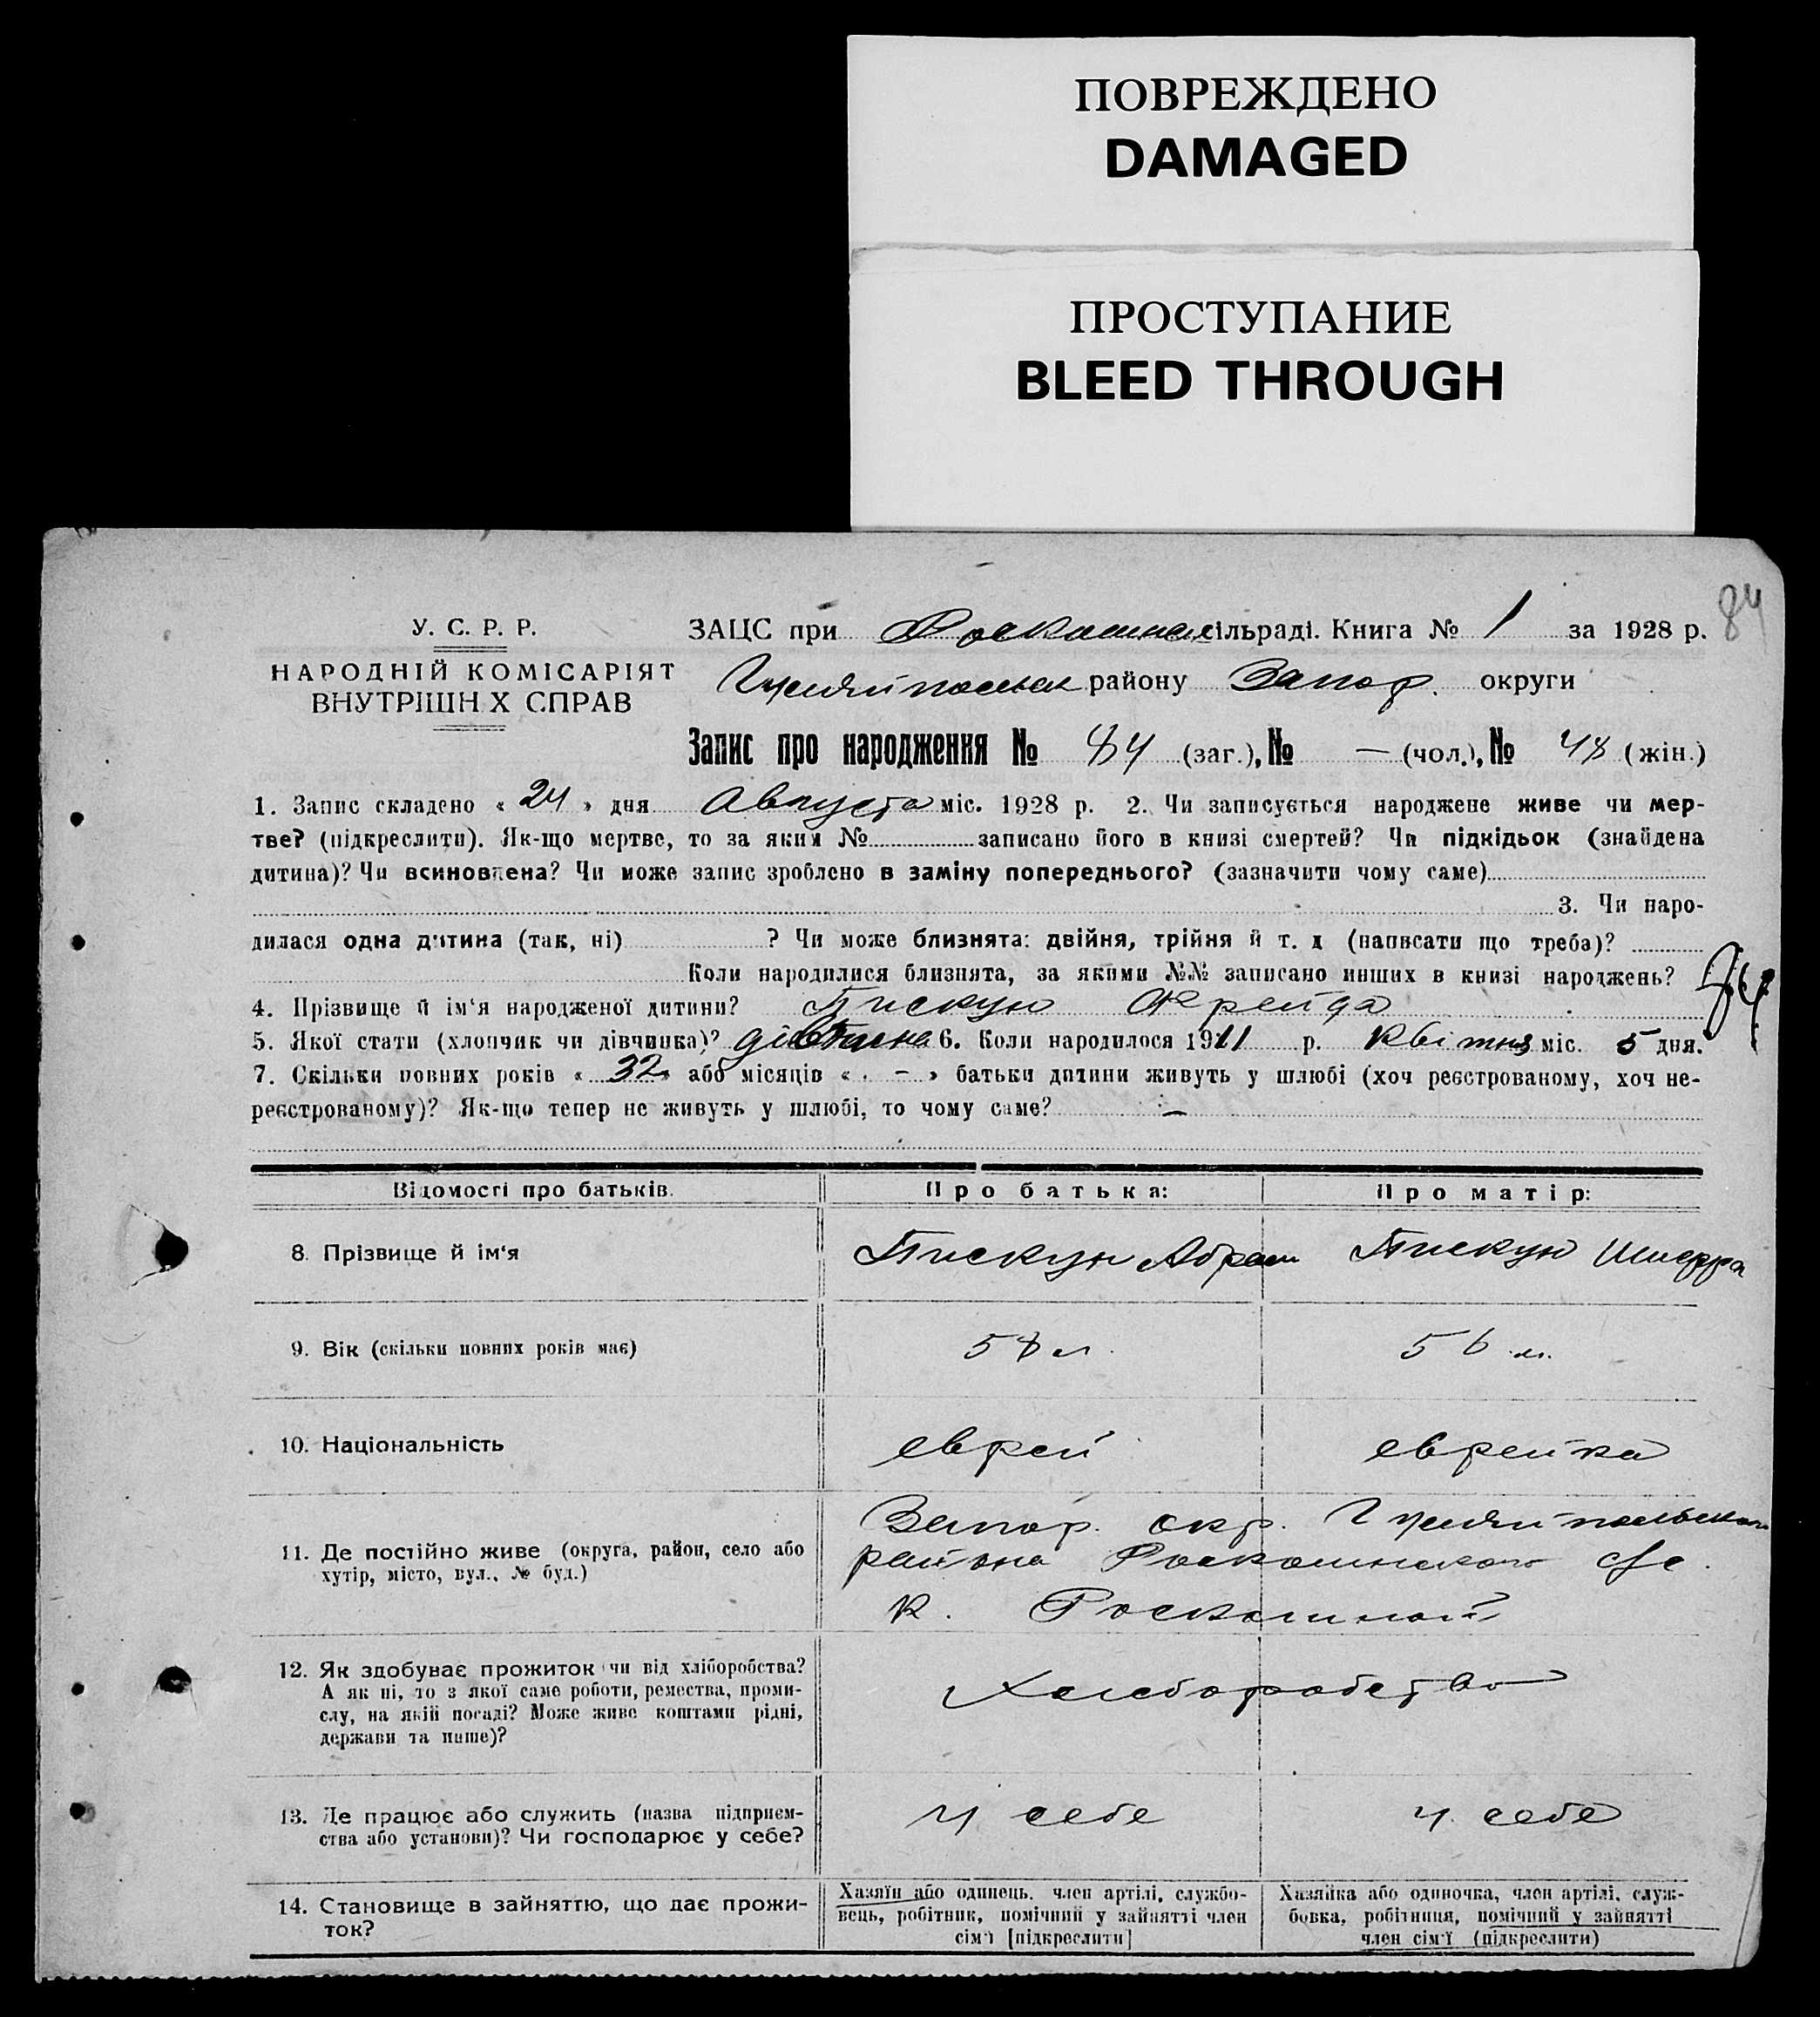 ПОВРЕЖДЕНО
DAMAGED
ПРОСТУПАНИЕ
BLEED THROUGH
84
У. С. Р. Р.
НАРОДНІЙ КОМІСАРІЯТ
ВНУТРІШН Х СПРАВ
ЗАЦС при Роскошнен сільраді. Книга № 1 за 1928 р.
Гуляйпольск району Запор. округи
Запис про народження № 84 (заг.), № — (чол.), № 48 (жін.)
1. Запис складено « 24 » дня Августа міс. 1928 р. 2. Чи записується народжене живе чи мер-
тве? (підкреслити). Як-що мертве, то за яким № записано його в книзі смертей? Чи підкідьок (знайдена
дитина)? Чи всиновлена? Чи може запис зроблено в заміну попереднього? (зазначити чому саме)
3. Чи наро-
дилася одна дитина (так, ні) ? Чи може близнята: двійня, трійня й т. д (написати що треба)?
Коли народилися близнята, за якими №№ записано инших в книзі народжень?
4. Прізвище й ім'я народженої дитини? Пискун Фрейда
5. Якої статі (хлопчик чи дівчинка)? дівчина 6. Коли народилося 1911 р. Квітня міс. 5 дня.
7. Скільки повних років « 32 » або місяців « - » батьки дитини живуть у шлюбі (хоч реєстрованому, хоч не-
реєстрованому)? Як-що тепер не живуть у шлюбі, то чому саме? —
Відомості про батьків.
Про батька:
Про матір:
8. Прізвище й ім'я
Пискун Абрам
Пискун Шифра
9. Вік (скільки повних років має)
58 л.
56 л.
10. Національність
еврей
еврейка
11. Де постійно живе (округа, район, село або
хутір, місто, вул., № буд.)
Запор. окр. Гуляйпольского
района Роскошнского с/с.
к. Роскошной
12. Як здобуває прожиток чи від хліборобства?
А як ні, то з якої саме роботи, ремества, проми-
слу, на якій посаді? Може живе коштами рідні,
держави та инше)?
Хлеборобство
13. Де працює або служить (назва підприєм-
ства або установи)? Чи господарює у себе?
у себе
у себе
14. Становище в зайняттю, що дає прожи-
ток?
Хазяїн або одинець, член артілі, службо-
вець, робітник, помічний у зайнятті член
сім'ї [підкреслити]
Хазяйка або одиночка, член артілі, служ-
бовка, робітниця, помічний у зайнятті
член сім'ї (підкреслити)